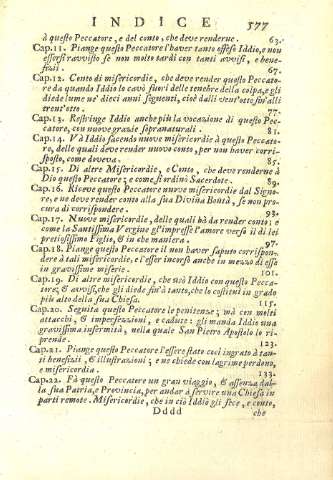 INDICE 577
à questo Peccatore, e del conto, che deve renderne. 63.
Cap.11. Piange questo Peccatore l'haver tanto offeso Iddio, e non
essersi ravvisto se non molto tardi con tanti avvisi, e bene-
fizii. 67.
Cap.12. Conto di misericordie, che deve render questo Peccato-
re da quando Iddio lo cavò fuori delle tenebre della colpa, e gli
diede lume ne' dieci anni seguenti, cioè dalli vent'otto fin'alli
trent'otto. 77.
Cap.13. Restringe Iddio anche più la vocazione di questo Pec-
catore, con nuove grazie sopranaturali. 81.
Cap.14. Và Iddio facendo nuove misericordie à questo Peccato-
re, delli quali deve render nuovo conto, per non haver corri-
sposto, come doveva. 85.
Cap.15. Di altre Misericordie, e Conto, che deve renderne à
Dio questo Peccatore; e come si ordinò Sacerdote. 89.
Cap.16. Riceve questo Peccatore nuove misericordie dal Signo-
re, e ne deve render conto alla sua Divina Bontà, se non pro-
cura di corrispondere. 93.
Cap.17. Nuove misericordie, delle quali hà da render conto; e
come la Santissima Vergine gl'impresse l'amore verso il di lei
pretiosissimo Figlio, & in che maniera. 97.
Cap.18. Piange questo Peccatore il non haver saputo corrispon-
dere à tali misericordie, e l'esser incorso anche in mezzo di esse
in gravissime miserie. 101.
Cap.19. Di altre misericordie, che usò Iddio con questo Pecca-
tore; & avvisi, che gli diede sin'à tanto, che lo costituì in grado
più alto della sua Chiesa. 115.
Cap.20. Seguita questo Peccatore le penitenze; mà con molti
attacchi, & imperfezioni, e cadute: gli manda Iddio una
gravissima infermità, nella quale San Pietro Apostolo lo ri-
prende. 123.
Cap.21. Piange questo Peccatore l'essere stato così ingrato à tan-
ti benefizii, & illustrazioni; e ne chiede con lagrime perdono,
e misericordia. 133.
Cap.22. Fà questo Peccatore un gran viaggio, & assenza dal-
la sua Patria, e Provincia, per andar à servire una Chiesa in
parti remote. Misericordie, che in ciò Iddio gli fece, e conto,
Dddd che